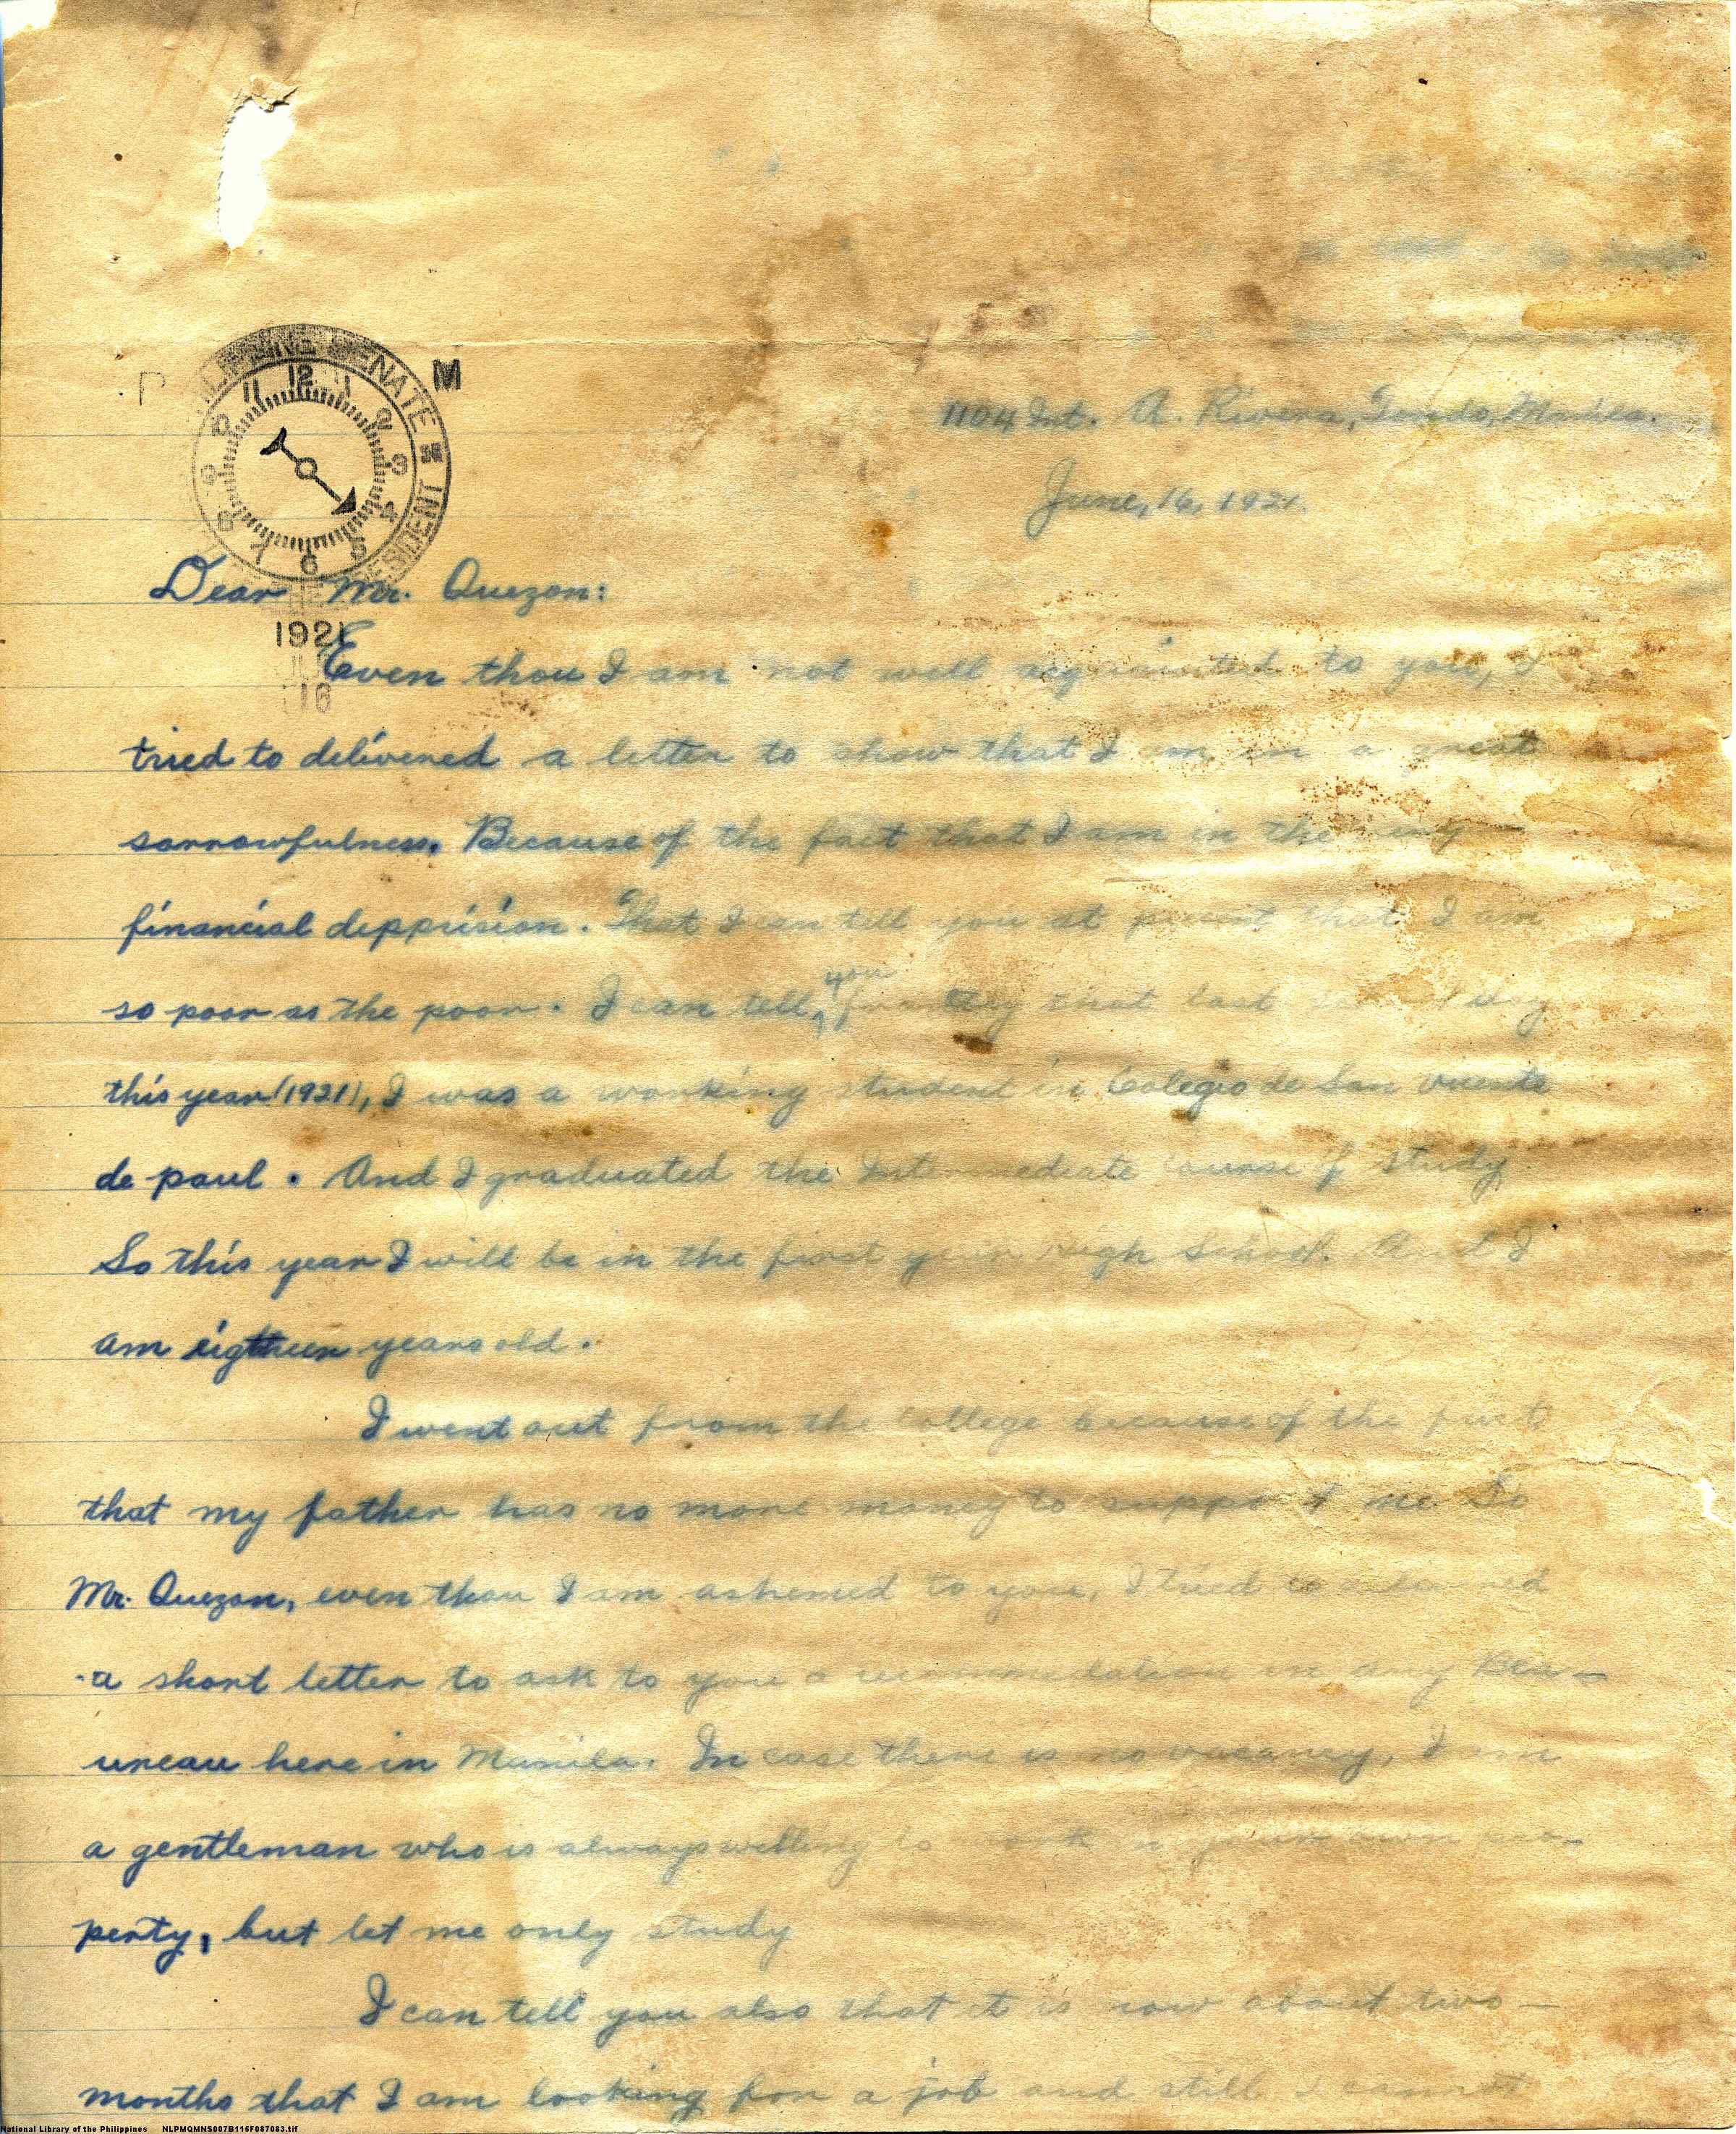 PHILIPPINE SENATE
PRESIDENT
M
12 1 2 3 4 5 6 7 8 9 10 11
1104 Int. A. Rivera, Tondo, Manila.
June, 16, 1921.
Dear Mr. Quezon:
1921
16
Even thou I am not well acquainted to you, I
tried to delivered a letter to show that I am in a great
sorrowfulness. Because of the fact that I am in the very
financial depprision. That I can tell you at present that I am
so poor as the poor. I can tell you frankly that last school day
this year (1921), I was a working student in Colegio de San Vicente
de paul. And I graduated the Intermediate course of study
So this year I will be in the first year High School. And I
am eigtheen years old.
I went out from the College because of the fact
that my father has no more money to support me. So
Mr. Quezon, even thou I am ashemed to you, I tried to delivered
a short letter to ask to you a recommendation in any Beu-
ureau here in Manila. In case there is no vacancy, I am
a gentleman who is always willing to work in your own pro-
perty, but let me only study
I can tell you also that it is now about two-
months that I am looking for a job and still I cannot
National Library of the Philippines NLPMQMNS007B116F087083.tif